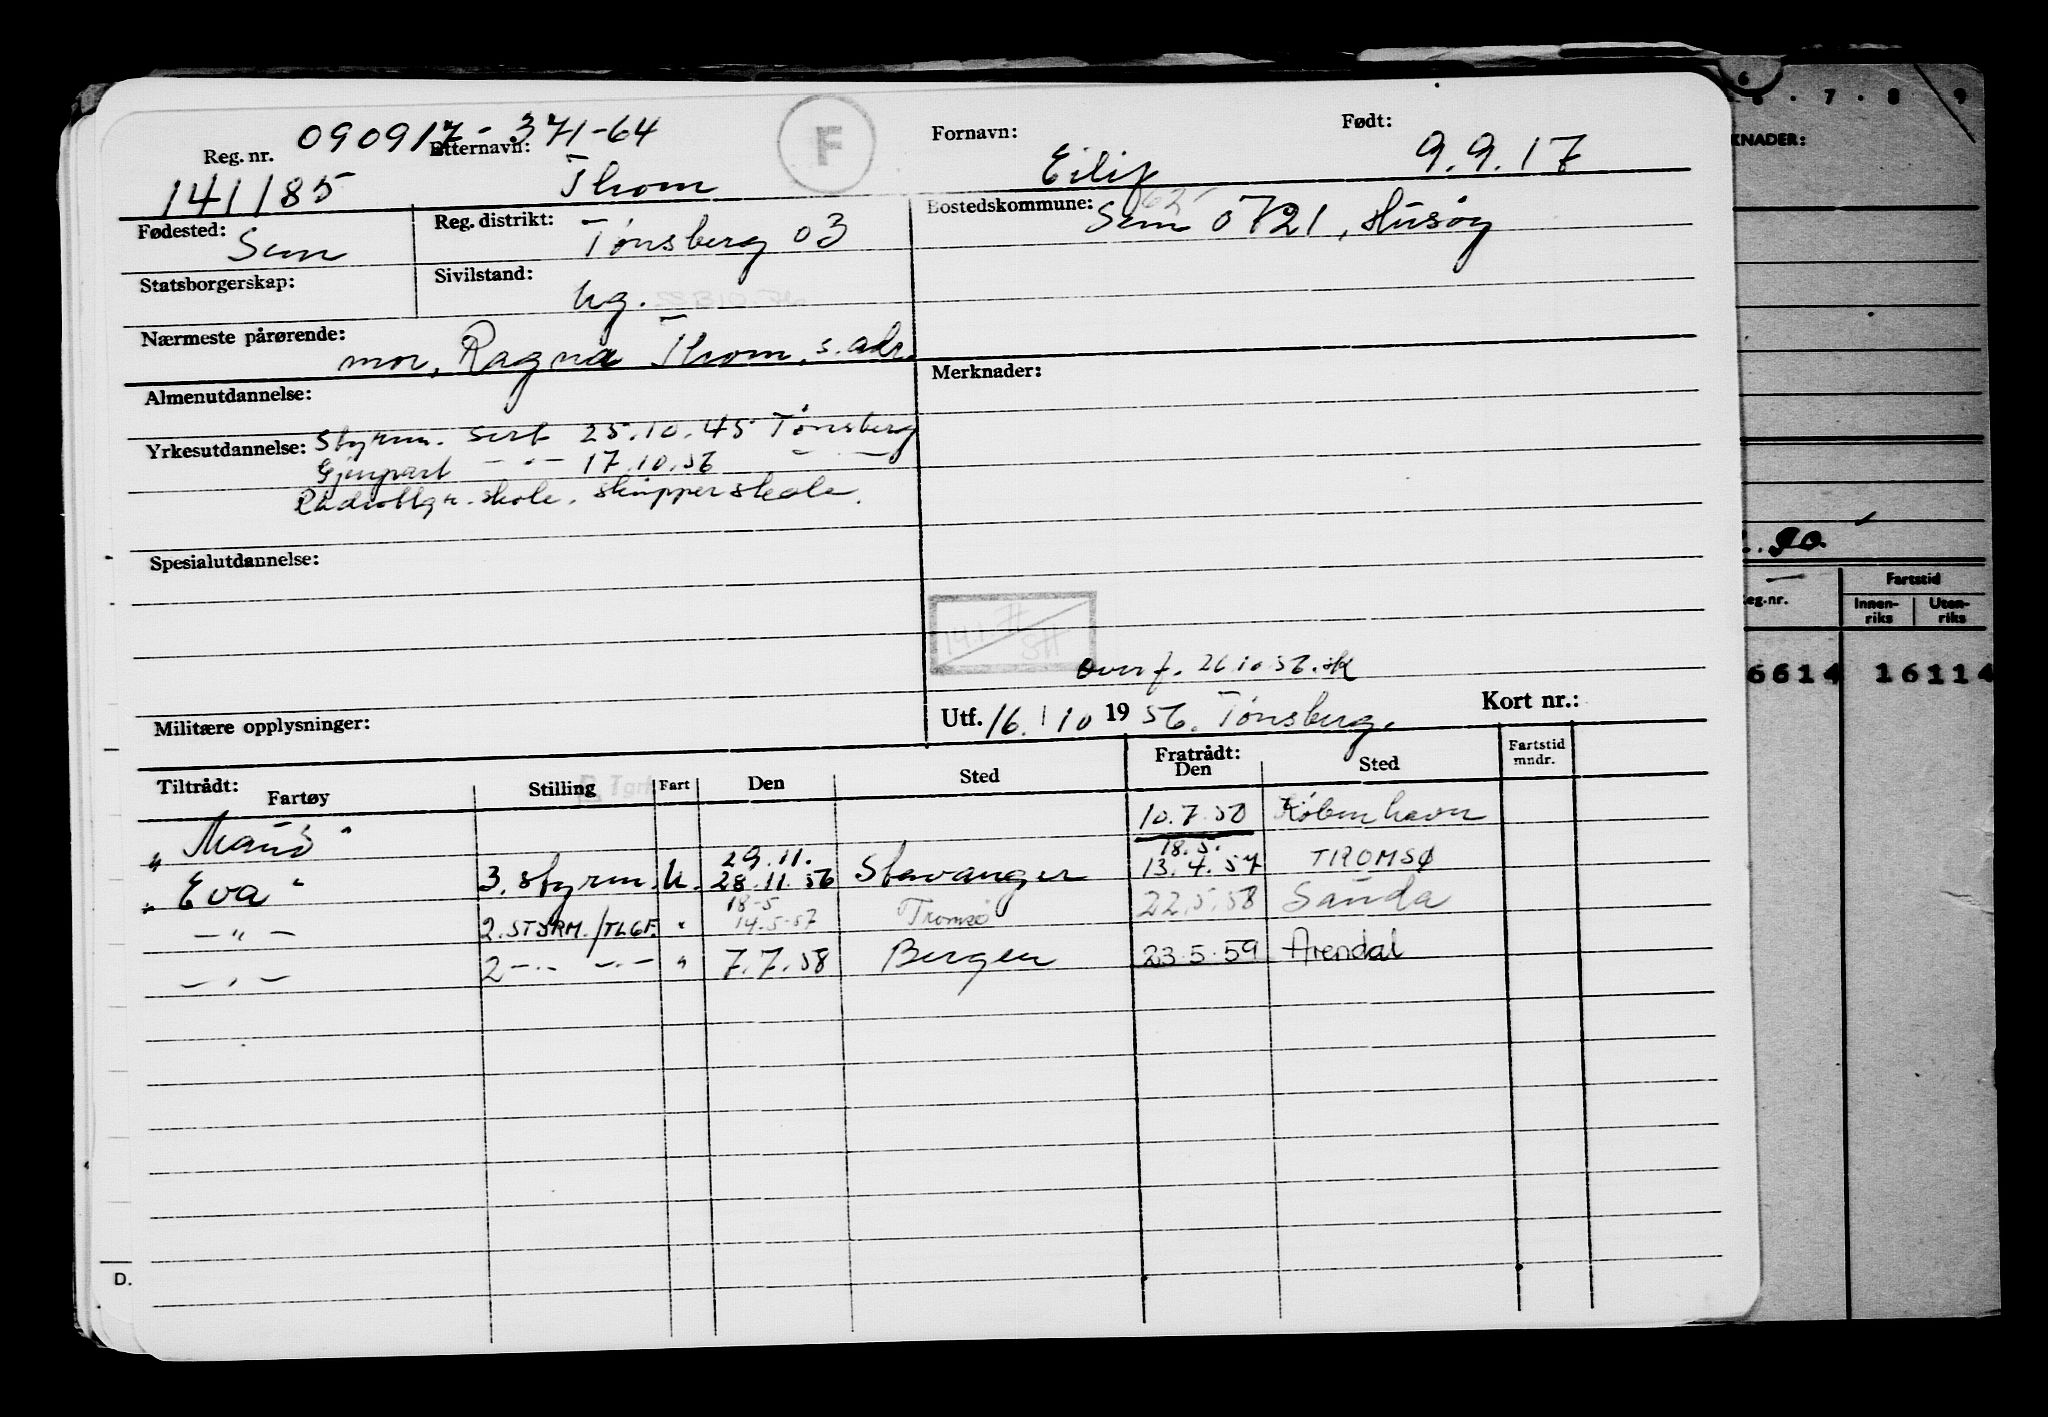 090917-371-64
F
Reg. nr. Etternavn: Fornavn: Født:
141185 Thom Eilif 9.9.17
Fødested: Sem Reg. distrikt: Tønsberg 03 Bostedskommune: Sem 0721, Husøy
Statsborgerskap: Sivilstand: ug.
Nærmeste pårørende: mor, Ragna Thom, s. adr.
Almenutdannelse: Merknader:
Yrkesutdannelse: Styrm. sert 25.10.45 Tønsberg
Gjenpart — " — 17.10.56 — " —
skole. Skipperskole.
Spesialutdannelse:
Overf. 26.10.56.
Militære opplysninger: Utf. 16. / 10 19 56. Tønsberg. Kort nr.:
Tiltrådt: Fratrådt: Fartstid mndr.
Fartøy Stilling Fart Den Sted Den Sted
10.7.50 København
29.11. 18.5.
"Eva" 3. styrm. u. 28.11.56 Stavanger 13.4.57 TROMSØ
18-5
— " — 2. STYRM./TLGF. " 14.5.57 Tromsø 22.5.58 Sauda
— " — 2 — " — — " — " 7.7.58 Bergen 23.5.59 Arendal
D.
6 . 7 . 8 . 9
KNADER:
90.
eg.nr. Fartstid
Innen-riks Uten-riks
6614 16114